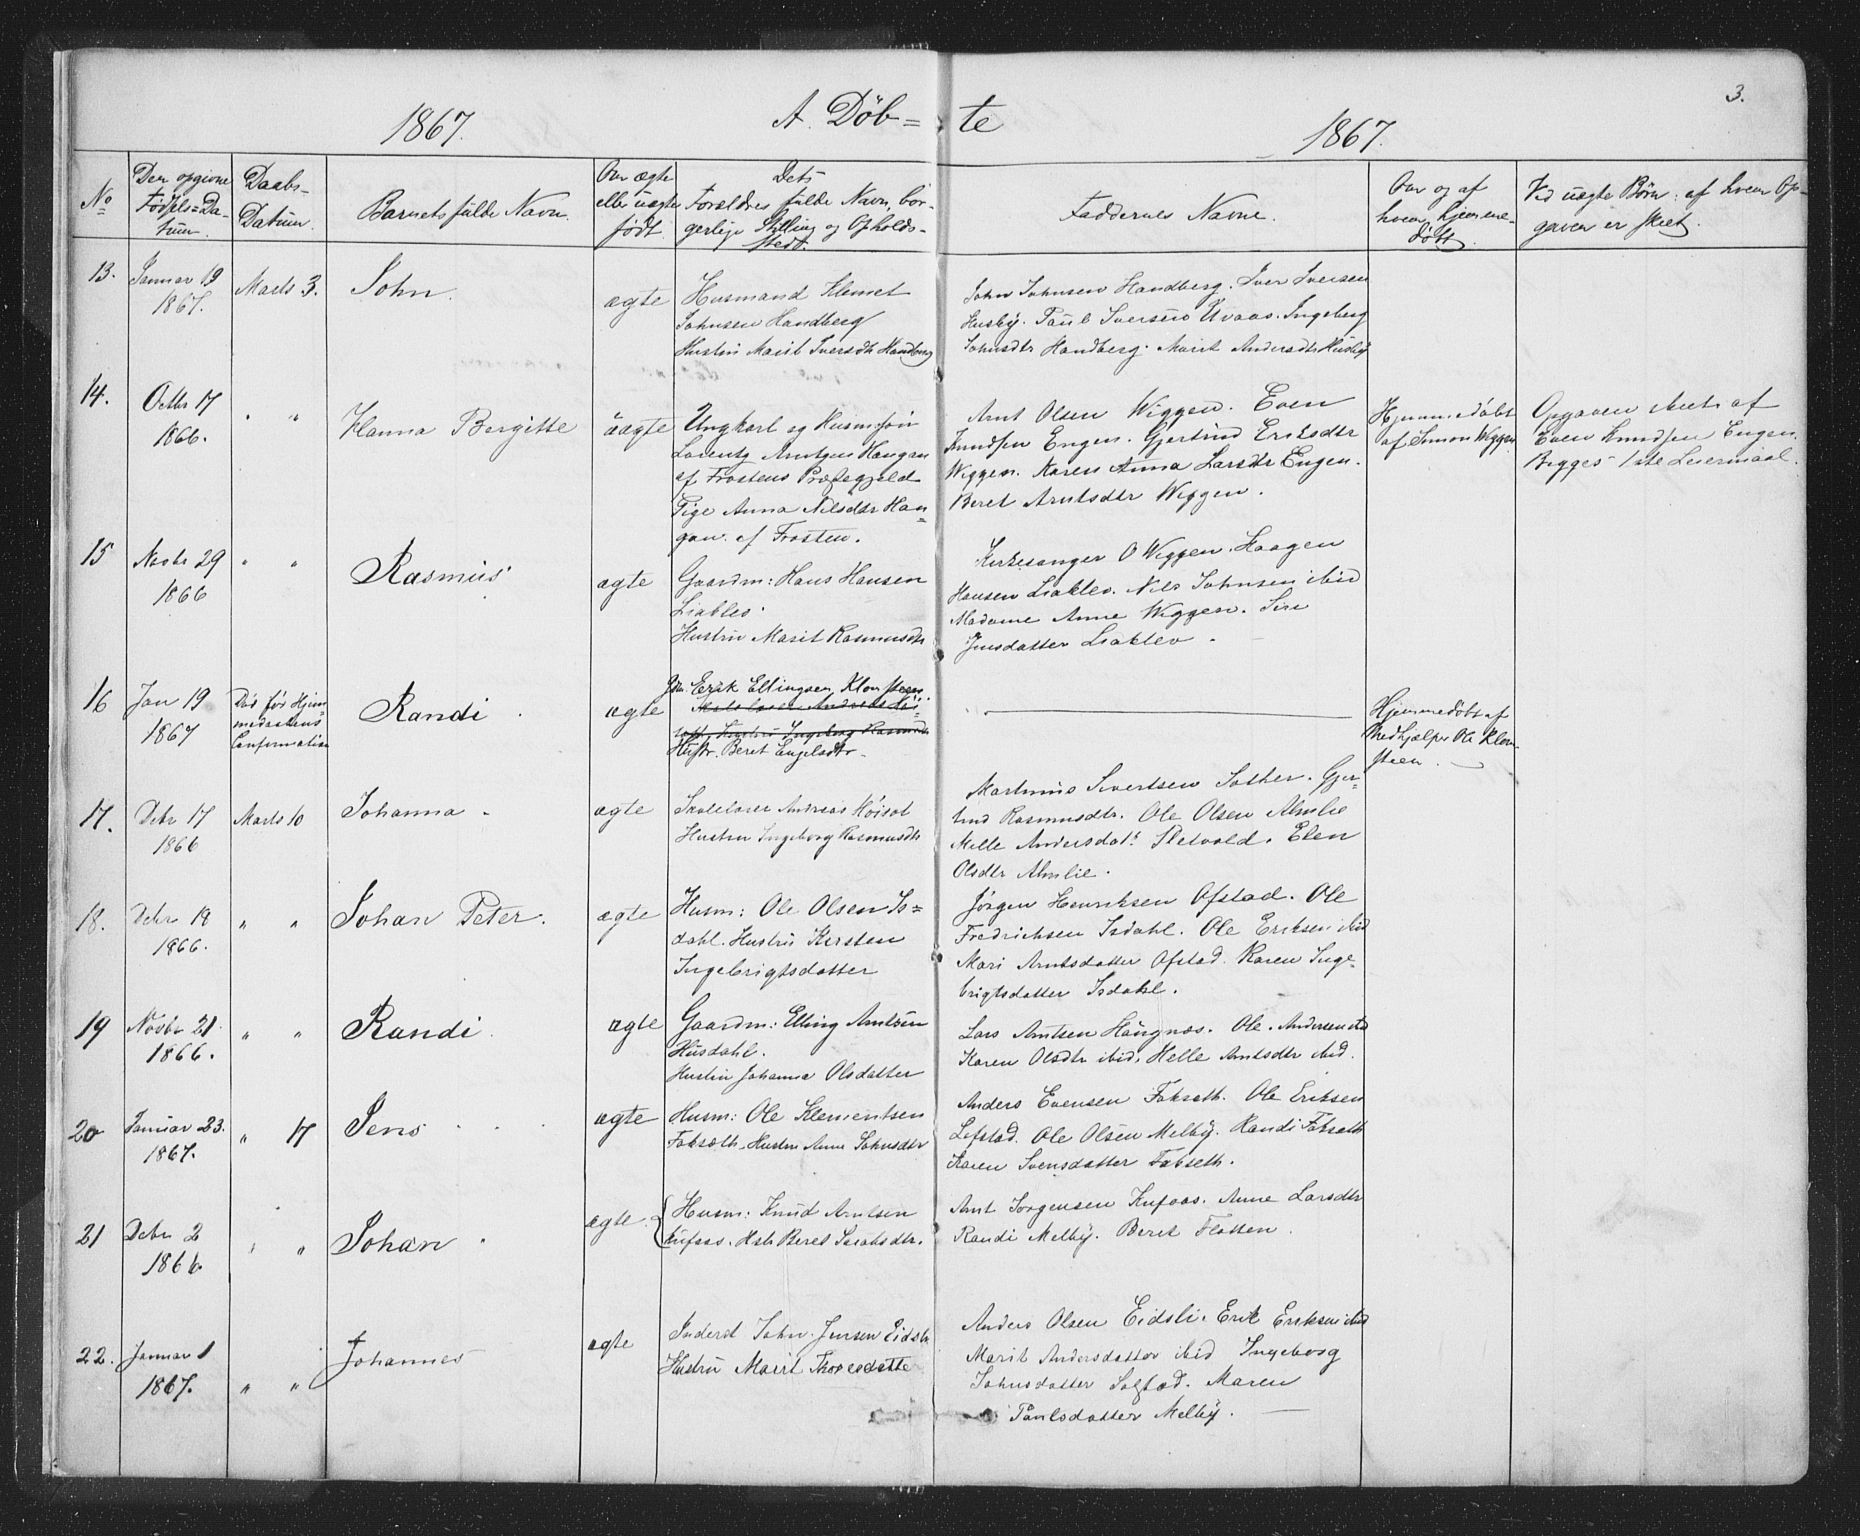 3.
1867. A. Döb= te 1867.
No
Den opgivne
Födsels=Da-
tum.
Daabs-
Datum.
Barnets fulde Navn.
Om ægte
eller uægte
født.
Dets
Forældres fulde Navn, bor-
gerlige Stilling og Opholds-
sted.
Faddernes Navne.
Om og af
hvem hjemme-
döbt.
Ved uægte Börn: af hvem Op-
gaven er skeet.
13. Januar 19
1867.
Marts 3.
John.
ægte
Husmand Klemet
Johnsen Handberg
Hustru Marit Iversdtr Handberg
John Johnsen Handberg. Iver Iversen
Husby. Paul Iversen Uvaas. Ingeberg
Johnsdtr Handberg. Marit Andersdtr Husby
14. Octbr 17
1866.
" "
Hanna Bergitte
uægte
Ungkarl og Husm: søn
Lorents Arntsen Haugan
af Frostens Præstegjeld
Pige Anna Nilsdtr Hau=
gan af Frosten.
Arnt Olsen Wiggen. Even
Knudsen Engen. Gjertrud Eriksdtr
Wiggen. Karen Anna Larsdtr Engen.
Beret Arntsdtr Wiggen.
Hjemmedöbt
af Simon Wiggen
Opgaven skeet af
Even Knudsen Engen.
Begges 1ste Leiermaal.
15 Novbr 29
1866
" "
Rasmus
ægte
Gaardm: Hans Hansen
Liaklev.
Hustru Marit Rasmusdtr
Kirkesanger O Wiggen. Haagen
Hansen Liaklev. Nils Johnsen ibid
Madame Anne Wiggen. Siri
Jensdatter Liaklev.
16 Jan 19
1867
Död før Hjem=
medaabens
Confirmation
Randi.
ægte
Gm. Erik Ellingsen Klonsteen.
Skolelærer Andreas Höi-
soth, Hustru Ingeborg Rasmusdtr
Hustr. Beret Engelsdtr.
Hjemmedöbt af
Medhjælper Ole Klon-
steen.
17. Debr 17
1866
Marts 10
Johanna.
ægte
Skolelærer Andreas Höisot
Hustru Ingeborg Rasmusdtr
Martinus Sivertsen Sother. Gjer-
trud Rasmusdtr. Ole Olsen Almlie
Melle Andersdat. Sletvold. Elen
Olsdtr Almlie.
18. Debr 19
1866.
" "
Johan Peter.
ægte
Husm: Ole Olsen Is=
dahl. Hustru Kirsten
Ingebrigtsdatter
Jörgen Henriksen Ofstad. Ole
Fredrichsen Isdahl. Ole Eriksen ibid
Mari Arntsdatter Ofstad. Karen Inge-
brigtsdatter Isdahl.
19 Novbr 21
1866.
" "
Randi.
ægte
Gaardm: Elling Arntsen
Husdahl.
Hustru Johanna Olsdatter
Lars Arntsen Haugnæs. Ole Andersen ibid
Karen Olsdtr ibid. Helle Arntsdtr ibid.
20 Januar 23.
1867.
" 17
Jens
ægte
Husm: Ole Klementsen
Fokseth. Hustru Anne Johnsdtr
Anders Evensen Fokseth. Ole Eriksen
Lefstad. Ole Olsen Melby. Randi Fokseth
Karen Svensdatter Fokseth.
21 Debr 2
1866.
" "
Johan.
ægte.
Husm: Knud Arntsen
Kufaas. Hstr Beret Jacobsdtr.
Arnt Jörgensen Kufaas. Anne Larsdtr
Randi Melby. Beret Flotten.
22. Januar 1
1867.
" "
Johannes
ægte
Inderst John Jensen Eidsli
Hustru Marit Thoresdatter
Anders Olsen Eidsli. Erik Eriksen ibid
Marit Andersdatter ibid Ingeborg
Johnsdatter Solstad. Maren
Paulsdatter Melby.